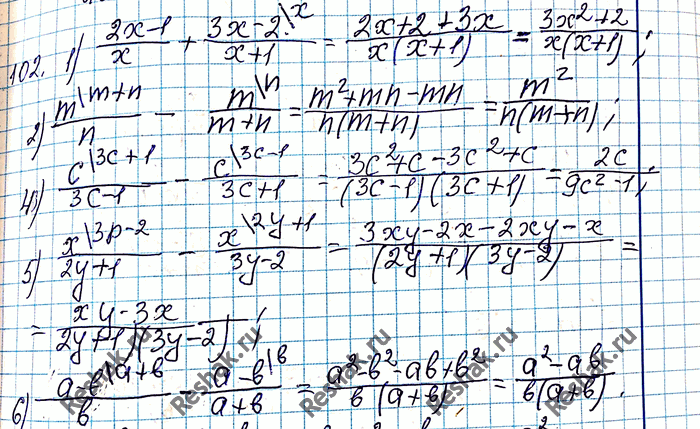 102. 1) (2x-1)/x + (3x-2\x)/(x+1) = (2x+2+3x)/(x(x+1)) = (3x²+2)/(x(x+1));
2) (m\m+n)/n - (m\n)/(m+n) = (m²+mn-mn)/(n(m+n)) = m²/(n(m+n));
4) (c\3c+1)/(3c-1) - (c\3c-1)/(3c+1) = (3c²+c-3c²+c)/((3c-1)(3c+1)) = 2c/(9c²-1);
5) (x\3p-2)/(2y+1) - (x\2y+1)/(3y-2) = (3xy-2x-2xy-x)/((2y+1)(3y-2)) =
= (xy-3x)/(2y+1)(3y-2);
6) (a-b\a+b)/b - (a-b\b)/(a+b) = (a²-b²-ab+b²)/(b(a+b)) = (a²-ab)/(b(a+b)).
Reshak.ru
Reshak.ru
Reshak.ru
Reshak.ru